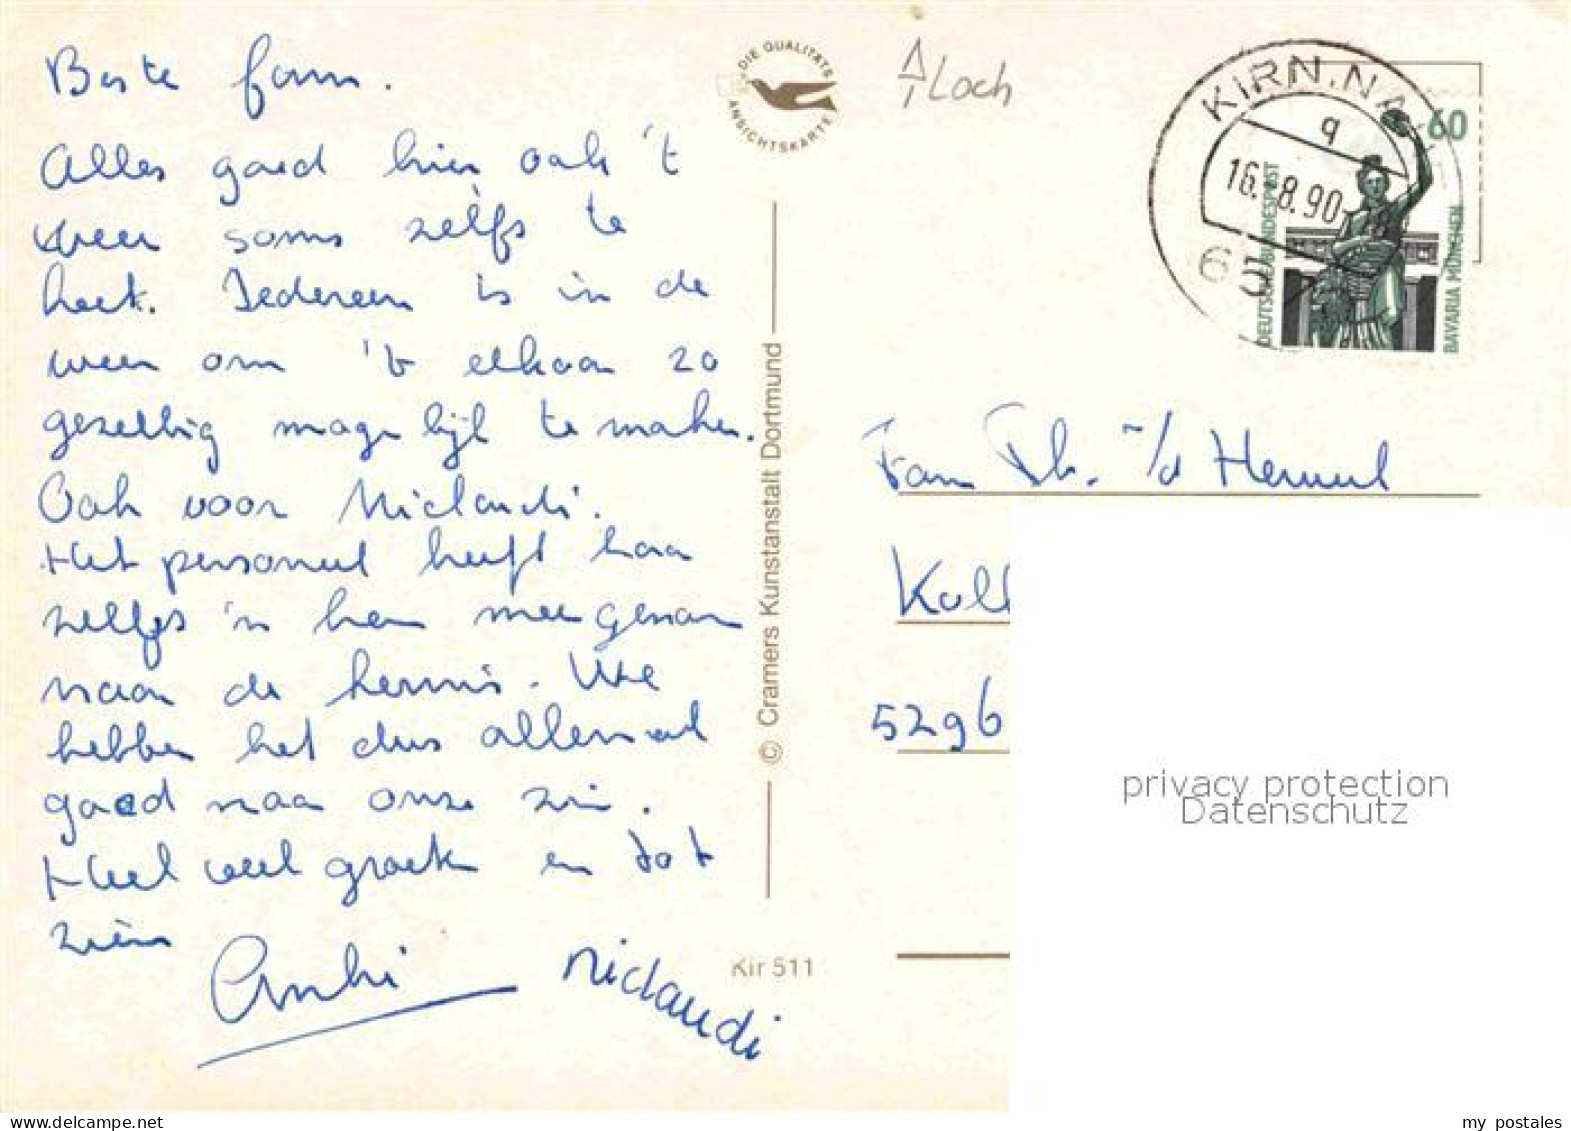 Beste fam.
Alles goed hier ook 't
weer soms zelfs te
heet. Iedereen is in de
weer om 't elkaar zo
gezellig mogelijk te maken.
Ook voor Niclaudi.
Het personeel heeft haar
zelfs 'n keer meegenomen
naar de kermis. We
hebben het dus allemaal
goed naar onze zin.
Heel veel groeten en tot
ziens
Niclaudi
DIE QUALITÄTS
ANSICHTSKARTE
© Cramers Kunstanstalt Dortmund
Kir 511
Loch
KIRN, NAHE
q
16.-8.90
60
DEUTSCHE BUNDESPOST
BAVARIA MÜNCHEN
Fam Th. v/d Heuvel
Kol
5296
privacy protection
Datenschutz
www.delcampe.net
my postales